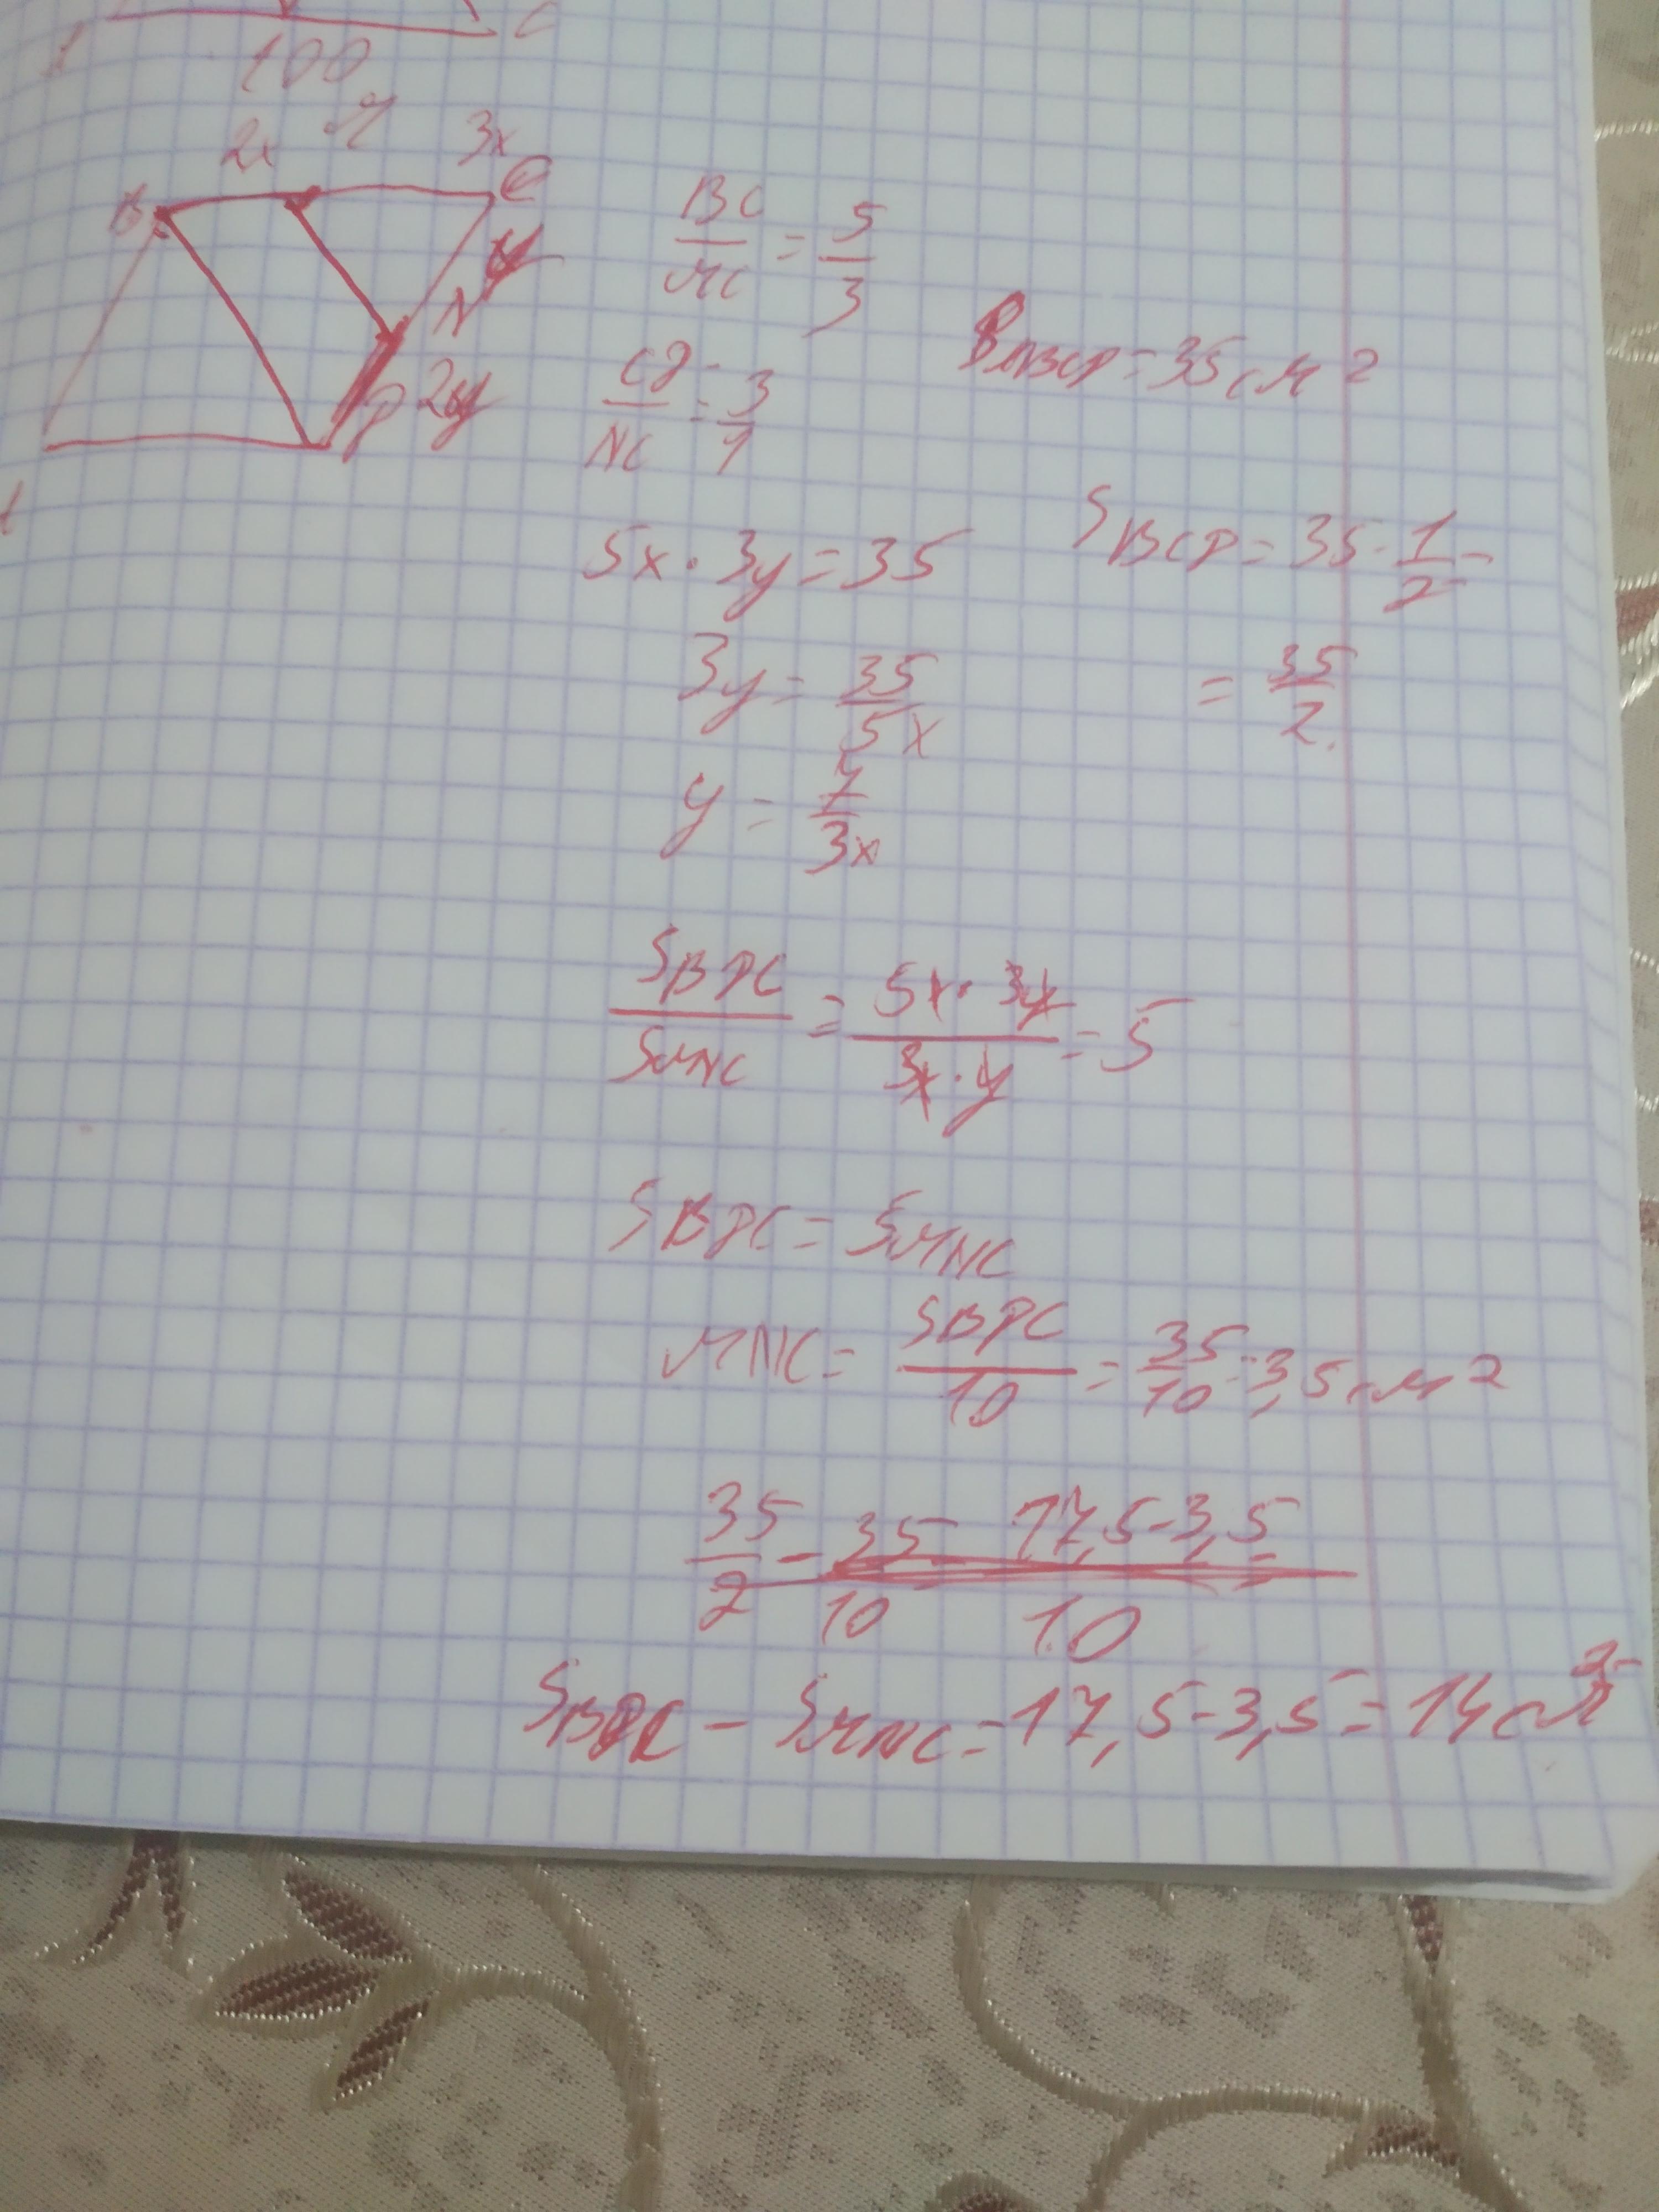 C
100
2x M 3x
B C
y
N
P 2y
BC/MC = 5/3
CP/NC = 3/1
SABCP = 35 см²
5x · 3y = 35
SBCP = 35 · 1/2 =
= 35/2
3y = 35/5x
y = 7/3x
SBPC/SMNC = 5x · 3y/3x · y = 5
SBPC = 5MNC
MNC = SBPC/10 = 35/10 = 3,5 см²
35/2 - 35/10 17,5-3,5/10
SBPC - SMNC = 17,5-3,5 = 14 см²